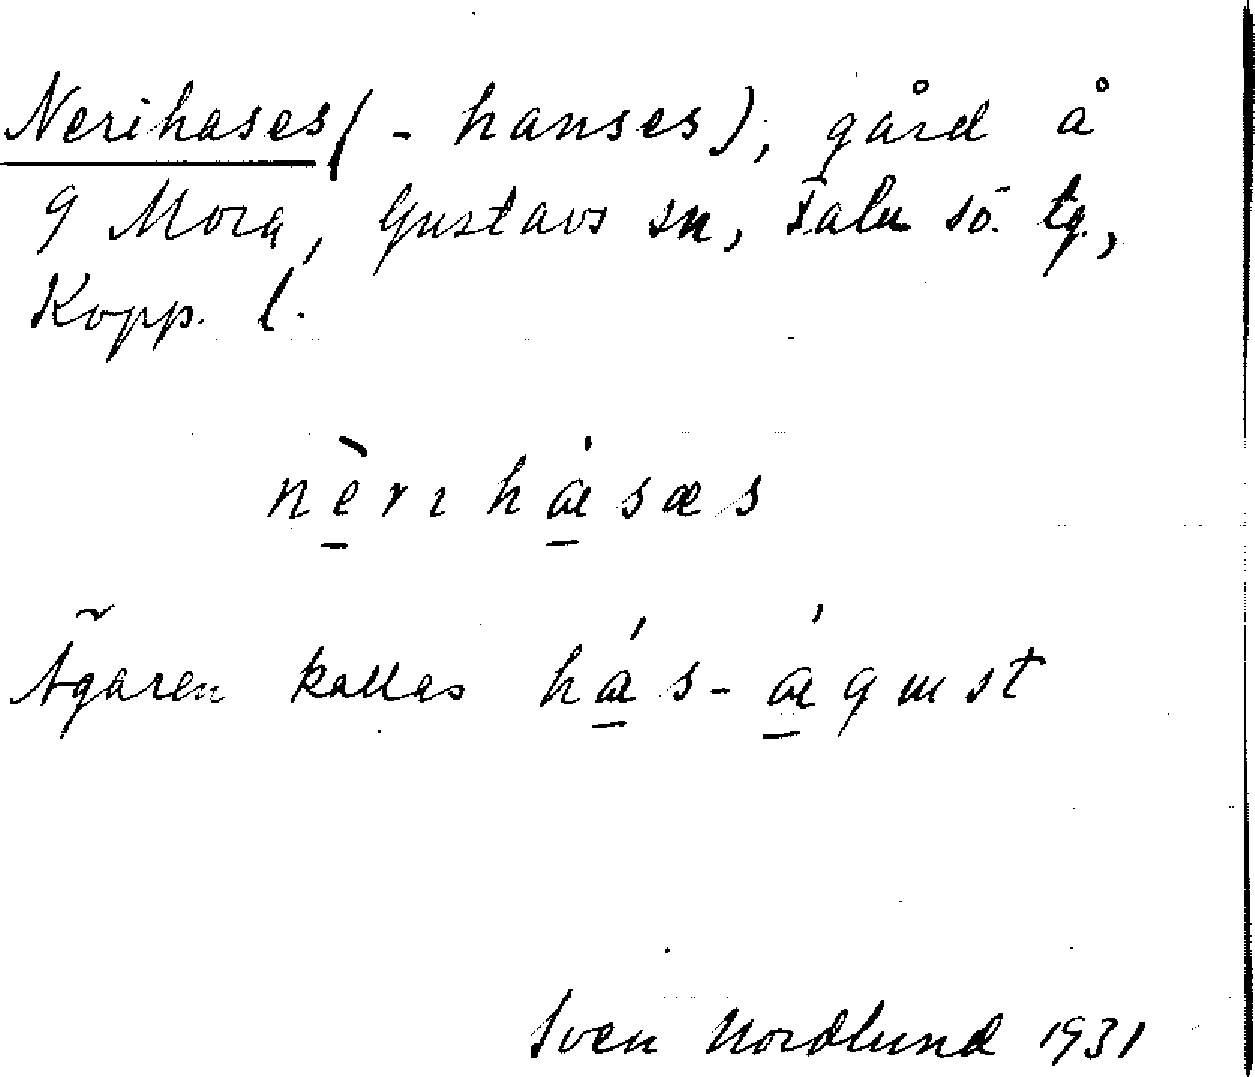 Nerihases (- hanses), gård å
9 Mora, Gustavs sn, Falu sö. tg.,
Kopp. l.
nèrıhásæs
Ägaren kallas hás-ágɯst
Sven Nordlund 1931